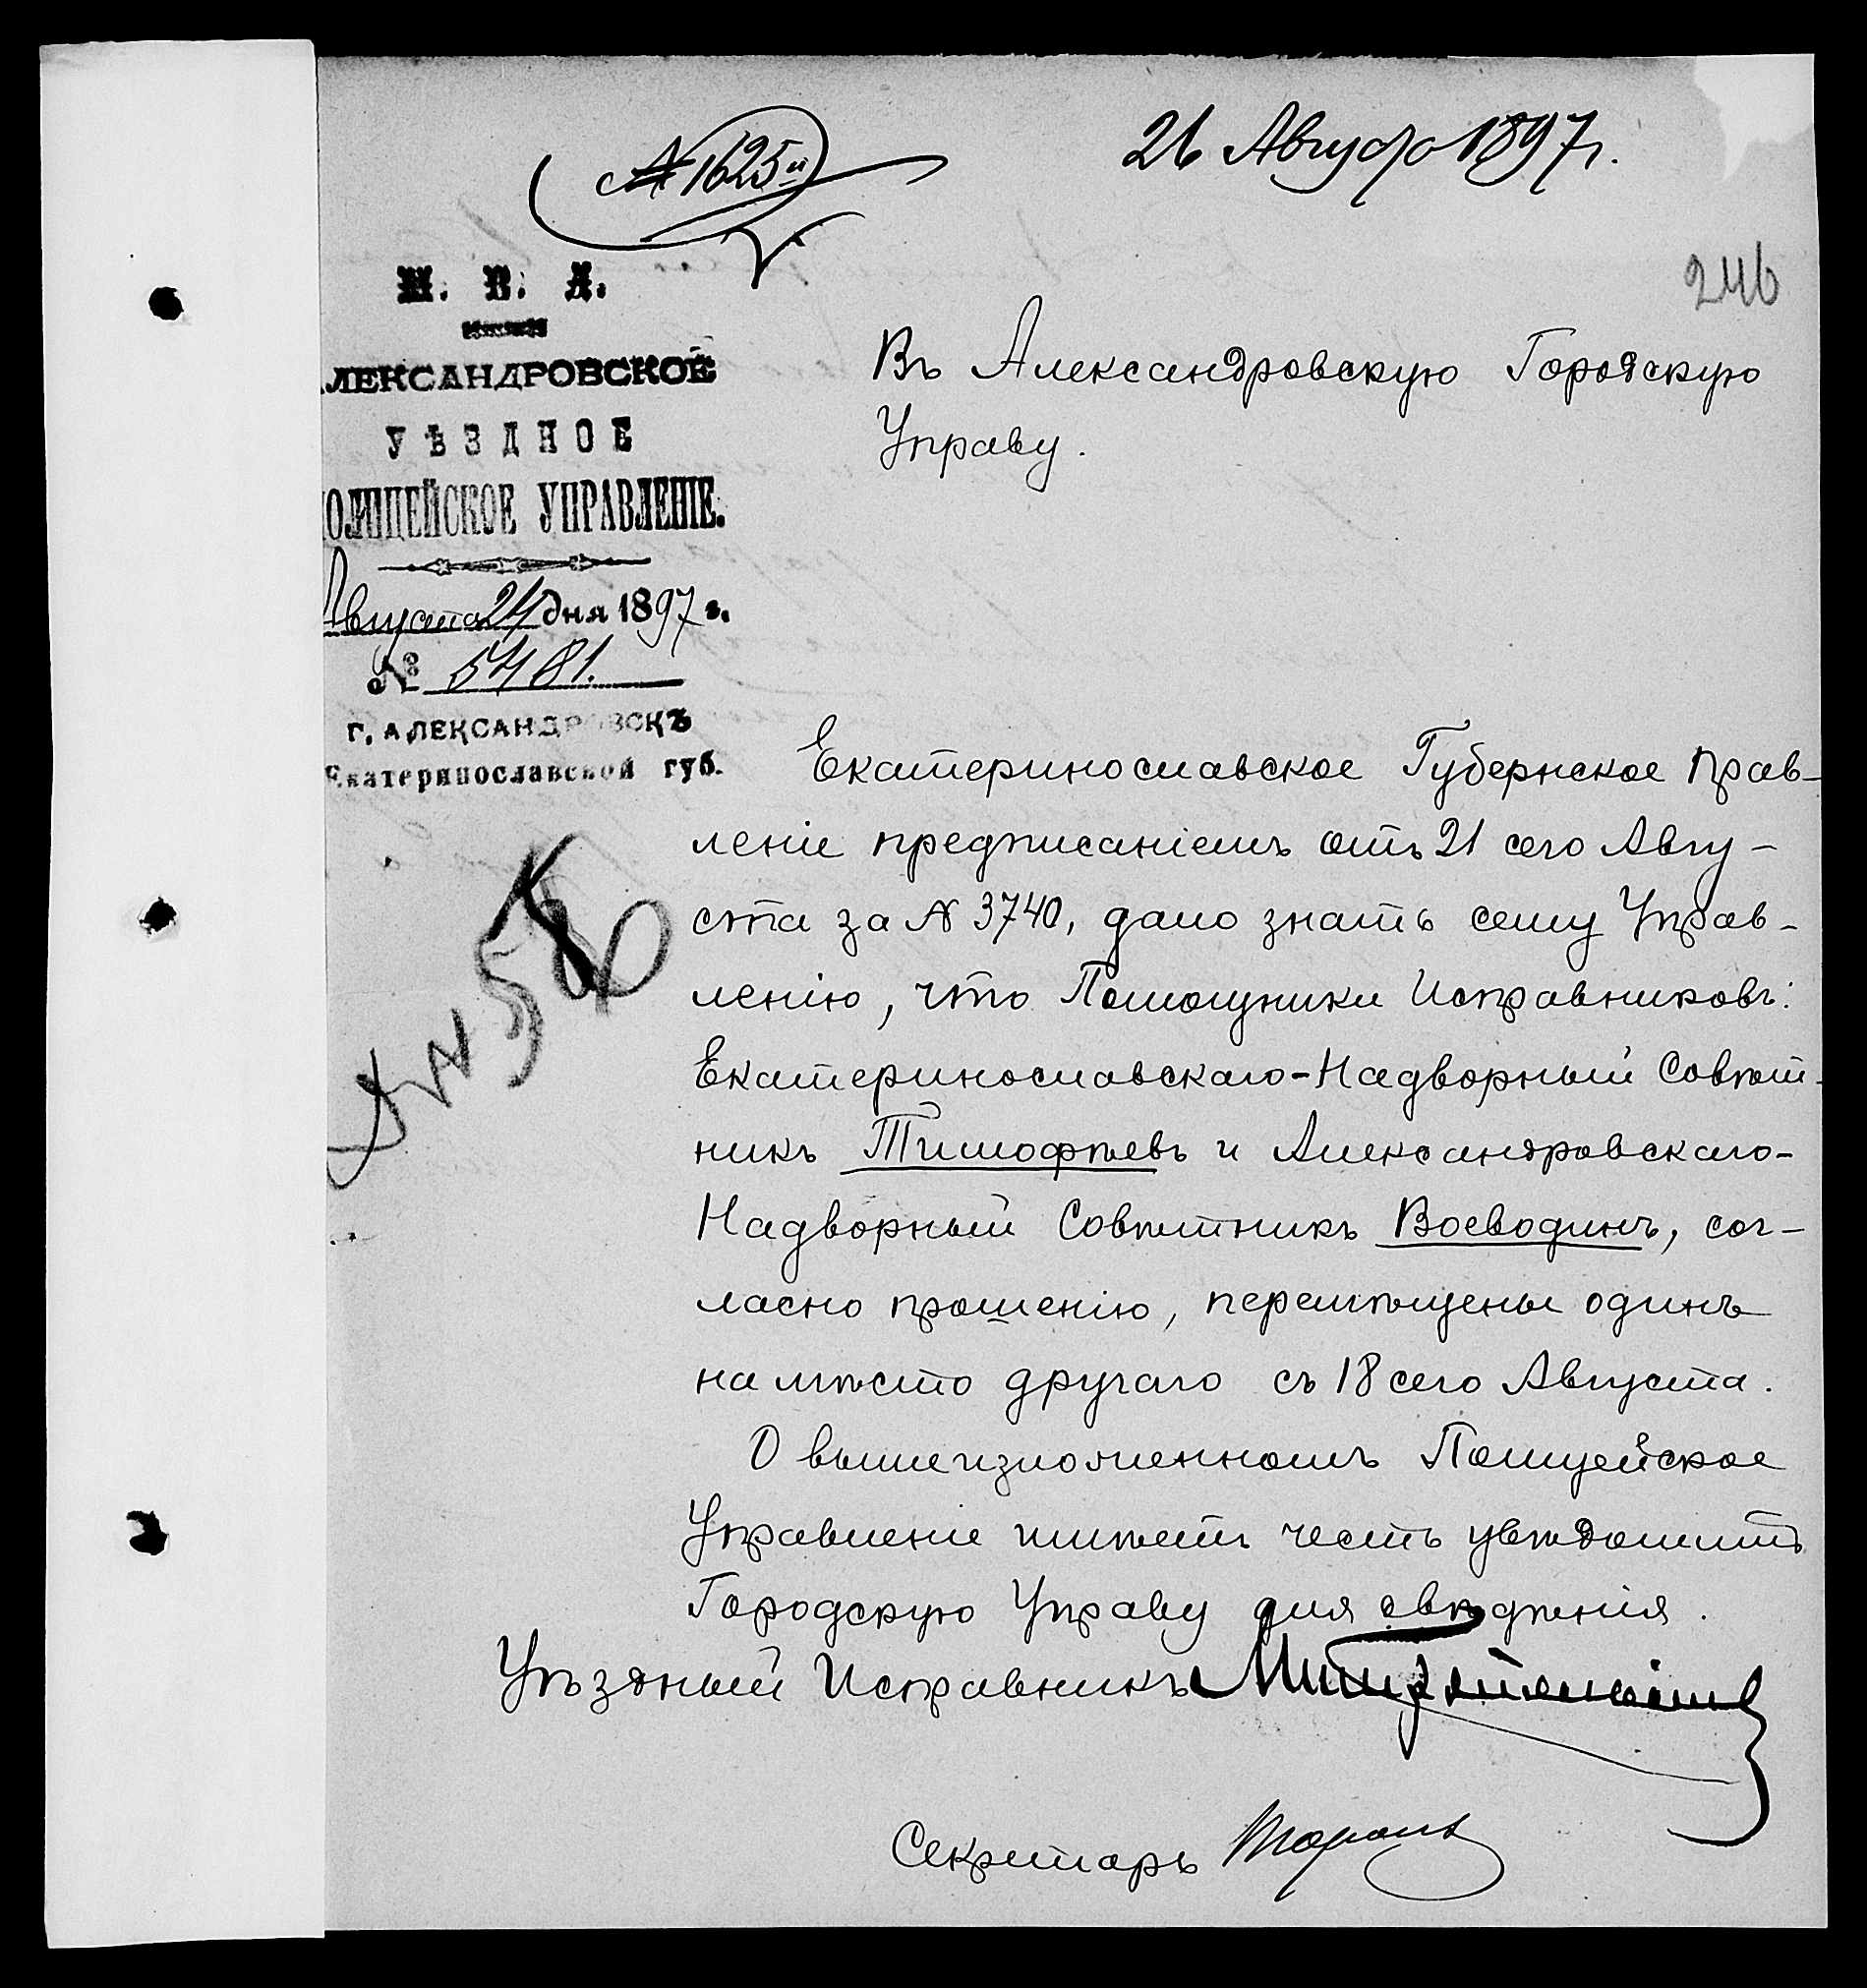 № 1625
26 Августа 1897 г.
246
М. В. Д.
ЛЕКСАНДРОВСКОЕ
УѢЗДНОЕ
ОЛИЦЕЙСКОЕ УПРАВЛЕНІЕ.
Августа 24 дня 1897 г.
№ 5481.
Г. АЛЕКСАНДРОВСКЪ
Екатеринославской губ.
Въ Александровскую Городскую
Управу.
Екатеринославское Губернское Прав-
леніе предписаніемъ отъ 21 сего Авгу-
ста за № 3740, дало знать сему Управ-
ленію, что Помощники Исправниковъ:
Екатеринославскаго-Надворный Совѣт-
никъ Тимофѣевъ и Александровскаго-
Надворный Совѣтникъ Воеводинъ, сог-
ласно прошенію, перемѣщены одинъ
на мѣсто другаго съ 18 сего Августа.
О вышеизложенномъ Полицейское
Управленіе имѣетъ честь увѣдомить
Городскую Управу для свѣдѣнія.
Уѣздный Исправникъ
Секретарь